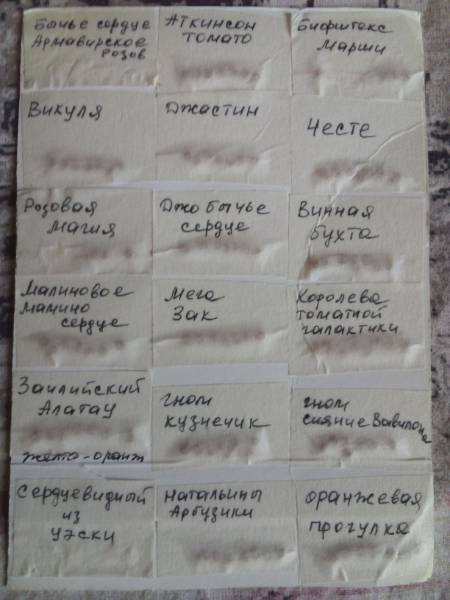 Бычье сердце
Армавирское
розов
Аткинсон
томато
Бифштекс
Марши
Викуля
Джастин
Честе
Розовая
магия
Джо бычье
сердце
Винная
бухта
Малиновое
мамино
сердце
Мега
Зак
Королева
томатной
галактики
Заилийский
Алатау
желто-оранж
гном
кузнечик
гном
сияние Вавилона
Сердцевидный
из
Уэски
Натальины
Арбузики
Оранжевая
прогулка